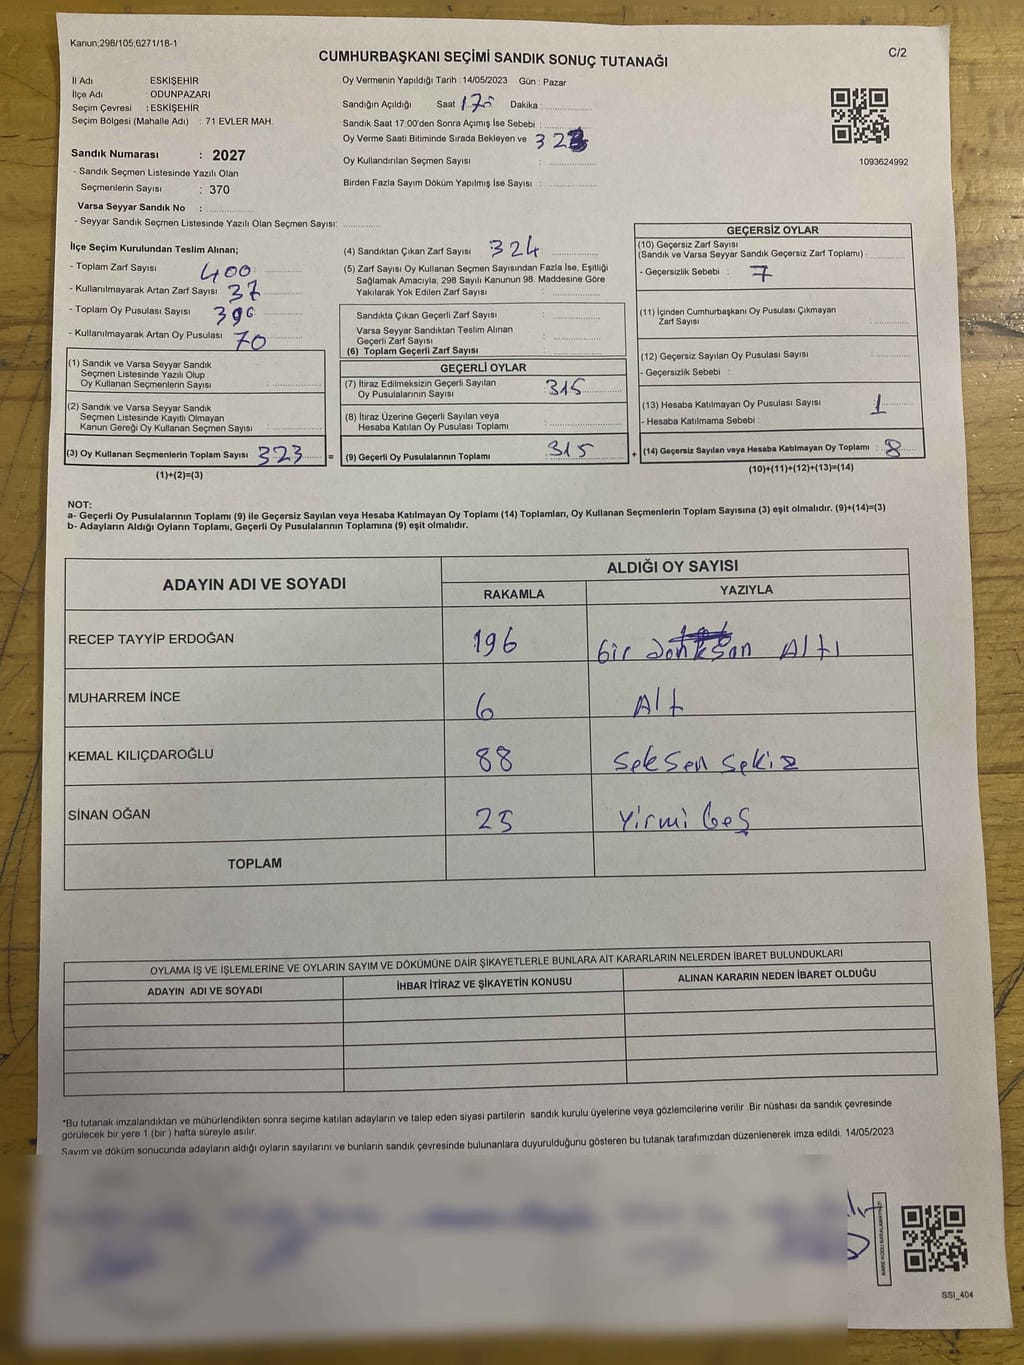 Kanun;298/105;6271/18-1
C/2
CUMHURBAŞKANI SEÇİMİ SANDIK SONUÇ TUTANAĞI
İl Adı ESKİŞEHİR
İlçe Adı ODUNPAZARI
Seçim Çevresi : ESKİŞEHİR
Seçim Bölgesi (Mahalle Adı) : 71 EVLER MAH.
Sandık Numarası : 2027
- Sandık Seçmen Listesinde Yazılı Olan
Seçmenlerin Sayısı : 370
Varsa Seyyar Sandık No :
- Seyyar Sandık Seçmen Listesinde Yazılı Olan Seçmen Sayısı:
Oy Vermenin Yapıldığı Tarih : 14/05/2023 Gün : Pazar
Sandığın Açıldığı Saat Dakika :
Sandık Saat 17:00'den Sonra Açımış İse Sebebi :
Oy Verme Saati Bitiminde Sırada Bekleyen ve
Oy Kullandırılan Seçmen Sayısı :
Birden Fazla Sayım Döküm Yapılmış İse Sayısı :
1093624992
İlçe Seçim Kurulundan Teslim Alınan;
- Toplam Zarf Sayısı 400
- Kullanılmayarak Artan Zarf Sayısı 37
- Toplam Oy Pusulası Sayısı
- Kullanılmayarak Artan Oy Pusulası 70
(1) Sandık ve Varsa Seyyar Sandık
Seçmen Listesinde Yazılı Olup
Oy Kullanan Seçmenlerin Sayısı :
(2) Sandık ve Varsa Seyyar Sandık
Seçmen Listesinde Kayıtlı Olmayan
Kanun Gereği Oy Kullanan Seçmen Sayısı :
(3) Oy Kullanan Seçmenlerin Toplam Sayısı 323 =
(1)+(2)=(3)
(4) Sandıktan Çıkan Zarf Sayısı 324
(5) Zarf Sayısı Oy Kullanan Seçmen Sayısından Fazla İse, Eşitliği
Sağlamak Amacıyla; 298 Sayılı Kanunun 98. Maddesine Göre
Yakılarak Yok Edilen Zarf Sayısı :
Sandıkta Çıkan Geçerli Zarf Sayısı :
Varsa Seyyar Sandıktan Teslim Alınan
Geçerli Zarf Sayısı :
(6) Toplam Geçerli Zarf Sayısı
GEÇERLİ OYLAR
(7) İtiraz Edilmeksizin Geçerli Sayılan
Oy Pusulalarının Sayısı 315
(8) İtiraz Üzerine Geçerli Sayılan veya
Hesaba Katılan Oy Pusulası Toplamı
(9) Geçerli Oy Pusulalarının Toplamı 315 +
GEÇERSİZ OYLAR
(10) Geçersiz Zarf Sayısı
(Sandık ve Varsa Seyyar Sandık Geçersiz Zarf Toplamı) :
- Geçersizlik Sebebi : 7
(11) İçinden Cumhurbaşkanı Oy Pusulası Çıkmayan
Zarf Sayısı :
(12) Geçersiz Sayılan Oy Pusulası Sayısı :
- Geçersizlik Sebebi :
(13) Hesaba Katılmayan Oy Pusulası Sayısı : 1
- Hesaba Katılmama Sebebi :
(14) Geçersiz Sayılan veya Hesaba Katılmayan Oy Toplamı : 8
(10)+(11)+(12)+(13)=(14)
NOT:
a- Geçerli Oy Pusulalarının Toplamı (9) ile Geçersiz Sayılan veya Hesaba Katılmayan Oy Toplamı (14) Toplamları, Oy Kullanan Seçmenlerin Toplam Sayısına (3) eşit olmalıdır. (9)+(14)=(3)
b- Adayların Aldığı Oyların Toplamı, Geçerli Oy Pusulalarının Toplamına (9) eşit olmalıdır.
ADAYIN ADI VE SOYADI ALDIĞI OY SAYISI
RAKAMLA YAZIYLA
RECEP TAYYİP ERDOĞAN 196 bir Altı
MUHARREM İNCE 6 Altı
KEMAL KILIÇDAROĞLU 88 seksen sekiz
SİNAN OĞAN 25 Yirmi beş
TOPLAM
OYLAMA İŞ VE İŞLEMLERİNE VE OYLARIN SAYIM VE DÖKÜMÜNE DAİR ŞİKAYETLERLE BUNLARA AİT KARARLARIN NELERDEN İBARET BULUNDUKLARI
ADAYIN ADI VE SOYADI İHBAR İTİRAZ VE ŞİKAYETİN KONUSU ALINAN KARARIN NEDEN İBARET OLDUĞU
*Bu tutanak imzalandıktan ve mühürlendikten sonra seçime katılan adayların ve talep eden siyasi partilerin sandık kurulu üyelerine veya gözlemcilerine verilir .Bir nüshası da sandık çevresinde
görülecek bir yere 1 (bir ) hafta süreyle asılır.
Sayım ve döküm sonucunda adayların aldığı oyların sayılarını ve bunların sandık çevresinde bulunanlara duyurulduğunu gösteren bu tutanak tarafımızdan düzenlenerek imza edildi. 14/05/2023
SSI_404